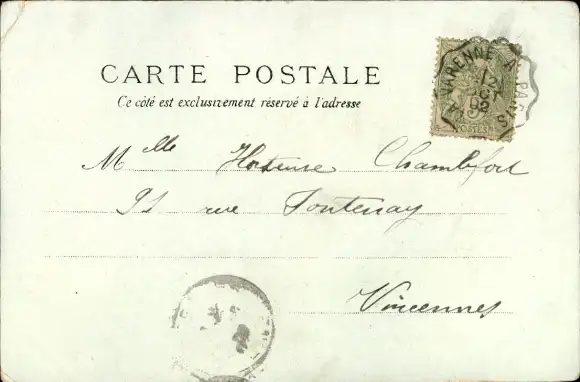 CARTE POSTALE
Ce côté est exclusivement réservé à l'adresse
LA VARENNE A PARIS
12
02
5
POSTES
Mlle Hortense Chambfort
91 rue Fontenay
Vincennes